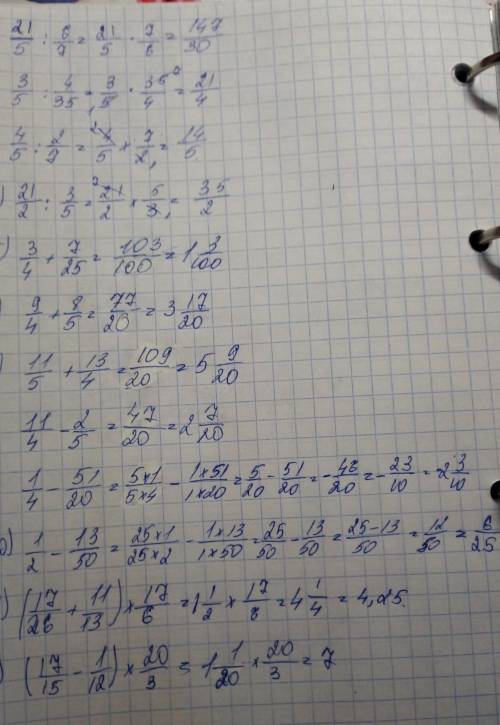 21/5 : 6/7 = 21/5 · 7/6 = 147/30
3/5 : 4/35 = 3/5 · 35/4 = 21/4
4/5 : 2/7 = 4/5 × 7/2 = 14/5
) 21/2 : 3/5 = 21/2 × 5/3 = 35/2
) 3/4 + 7/25 = 103/100 = 1 3/100
) 9/4 + 8/5 = 77/20 = 3 17/20
) 11/5 + 13/4 = 109/20 = 5 9/20
11/4 - 2/5 = 47/20 = 2 7/20
1/4 - 51/20 = 5×1/5×4 - 1×51/1×20 = 5/20 - 51/20 = -46/20 = -23/10 = -2 3/10
) 1/2 - 13/50 = 25×1/25×2 - 1×13/1×50 = 25/50 - 13/50 = 25-13/50 = 12/50 = 6/25
) (17/26 + 11/13) × 17/6 = 1 1/2 × 17/6 = 4 1/4 = 4,25
) (17/15 - 1/12) × 20/3 = 1 1/20 × 20/3 = 7